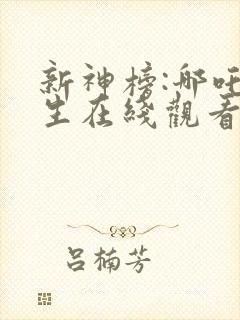 新神榜:哪吒
生在綫觀看
吕楠芳